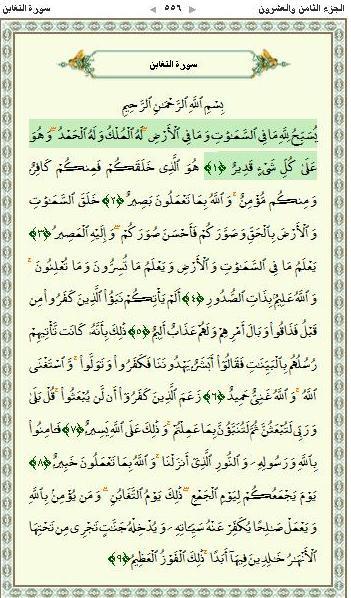 الجزء الثامن والعشرون ٥٥٦ سورة التغابن
سورة التغابن
بِسْمِ ٱللَّهِ ٱلرَّحْمَٰنِ ٱلرَّحِيمِ
يُسَبِّحُ لِلَّهِ مَا فِي ٱلسَّمَٰوَٰتِ وَمَا فِي ٱلْأَرْضِ ۖ لَهُ ٱلْمُلْكُ وَلَهُ ٱلْحَمْدُ ۖ وَهُوَ
عَلَىٰ كُلِّ شَيْءٍ قَدِيرٌ ﴿١﴾ هُوَ ٱلَّذِي خَلَقَكُمْ فَمِنكُمْ كَافِرٌ
وَمِنكُم مُّؤْمِنٌ ۚ وَٱللَّهُ بِمَا تَعْمَلُونَ بَصِيرٌ ﴿٢﴾ خَلَقَ ٱلسَّمَٰوَٰتِ
وَٱلْأَرْضَ بِٱلْحَقِّ وَصَوَّرَكُمْ فَأَحْسَنَ صُوَرَكُمْ ۖ وَإِلَيْهِ ٱلْمَصِيرُ ﴿٣﴾
يَعْلَمُ مَا فِي ٱلسَّمَٰوَٰتِ وَٱلْأَرْضِ وَيَعْلَمُ مَا تُسِرُّونَ وَمَا تُعْلِنُونَ ۚ
وَٱللَّهُ عَلِيمٌۢ بِذَاتِ ٱلصُّدُورِ ﴿٤﴾ أَلَمْ يَأْتِكُمْ نَبَؤُا۟ ٱلَّذِينَ كَفَرُوا۟ مِن
قَبْلُ فَذَاقُوا۟ وَبَالَ أَمْرِهِمْ وَلَهُمْ عَذَابٌ أَلِيمٌ ﴿٥﴾ ذَٰلِكَ بِأَنَّهُۥ كَانَت تَّأْتِيهِمْ
رُسُلُهُم بِٱلْبَيِّنَٰتِ فَقَالُوٓا۟ أَبَشَرٌ يَهْدُونَنَا فَكَفَرُوا۟ وَتَوَلَّوا۟ ۚ وَّٱسْتَغْنَى
ٱللَّهُ ۚ وَٱللَّهُ غَنِيٌّ حَمِيدٌ ﴿٦﴾ زَعَمَ ٱلَّذِينَ كَفَرُوٓا۟ أَن لَّن يُبْعَثُوا۟ ۚ قُلْ بَلَىٰ
وَرَبِّي لَتُبْعَثُنَّ ثُمَّ لَتُنَبَّؤُنَّ بِمَا عَمِلْتُمْ ۚ وَذَٰلِكَ عَلَى ٱللَّهِ يَسِيرٌ ﴿٧﴾ فَـَٔامِنُوا۟
بِٱللَّهِ وَرَسُولِهِۦ وَٱلنُّورِ ٱلَّذِيٓ أَنزَلْنَا ۚ وَٱللَّهُ بِمَا تَعْمَلُونَ خَبِيرٌ ﴿٨﴾
يَوْمَ يَجْمَعُكُمْ لِيَوْمِ ٱلْجَمْعِ ۖ ذَٰلِكَ يَوْمُ ٱلتَّغَابُنِ ۗ وَمَن يُؤْمِنۢ بِٱللَّهِ
وَيَعْمَلْ صَٰلِحًا يُكَفِّرْ عَنْهُ سَيِّـَٔاتِهِۦ وَيُدْخِلْهُ جَنَّٰتٍ تَجْرِي مِن تَحْتِهَا
ٱلْأَنْهَٰرُ خَٰلِدِينَ فِيهَآ أَبَدًا ۚ ذَٰلِكَ ٱلْفَوْزُ ٱلْعَظِيمُ ﴿٩﴾